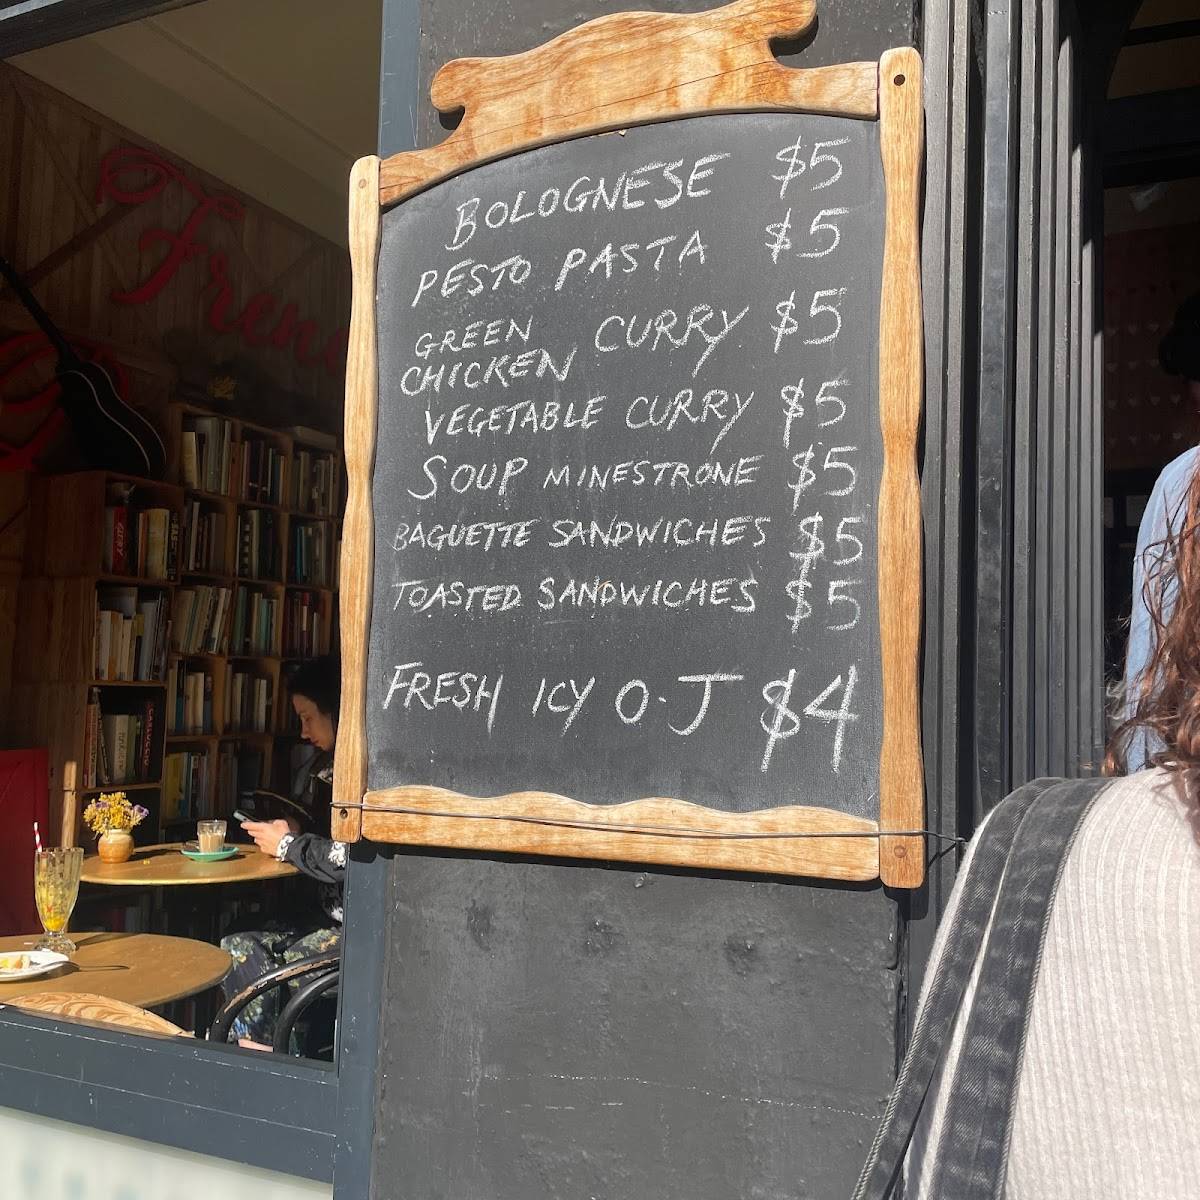 BOLOGNESE $5
PESTO PASTA $5
GREEN CHICKEN CURRY $5
VEGETABLE CURRY $5
SOUP MINESTRONE $5
BAGUETTE SANDWICHES $5
TOASTED SANDWICHES $5
FRESH ICY O.J $4